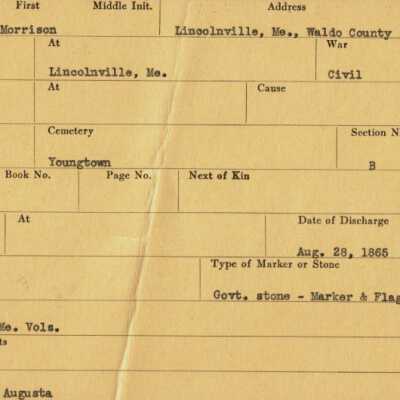 First Middle Init. Address
Morrison Lincolnville, Me., Waldo County
At War
Lincolnville, Me. Civil
At Cause
Cemetery Section N
Youngtown B
Book No. Page No. Next of Kin
At Date of Discharge
Aug. 28, 1865
Type of Marker or Stone
Govt. stone - Marker & Flag
Me. Vols.
ts
Augusta